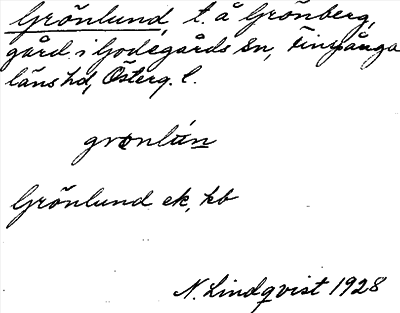 Grönlund, t. å Grönberg,
gård i Godegårds sn, Finspånga
läns hd, Österg. l.
grönlún
Grönlund ek, kb
N. Lindqvist 1928